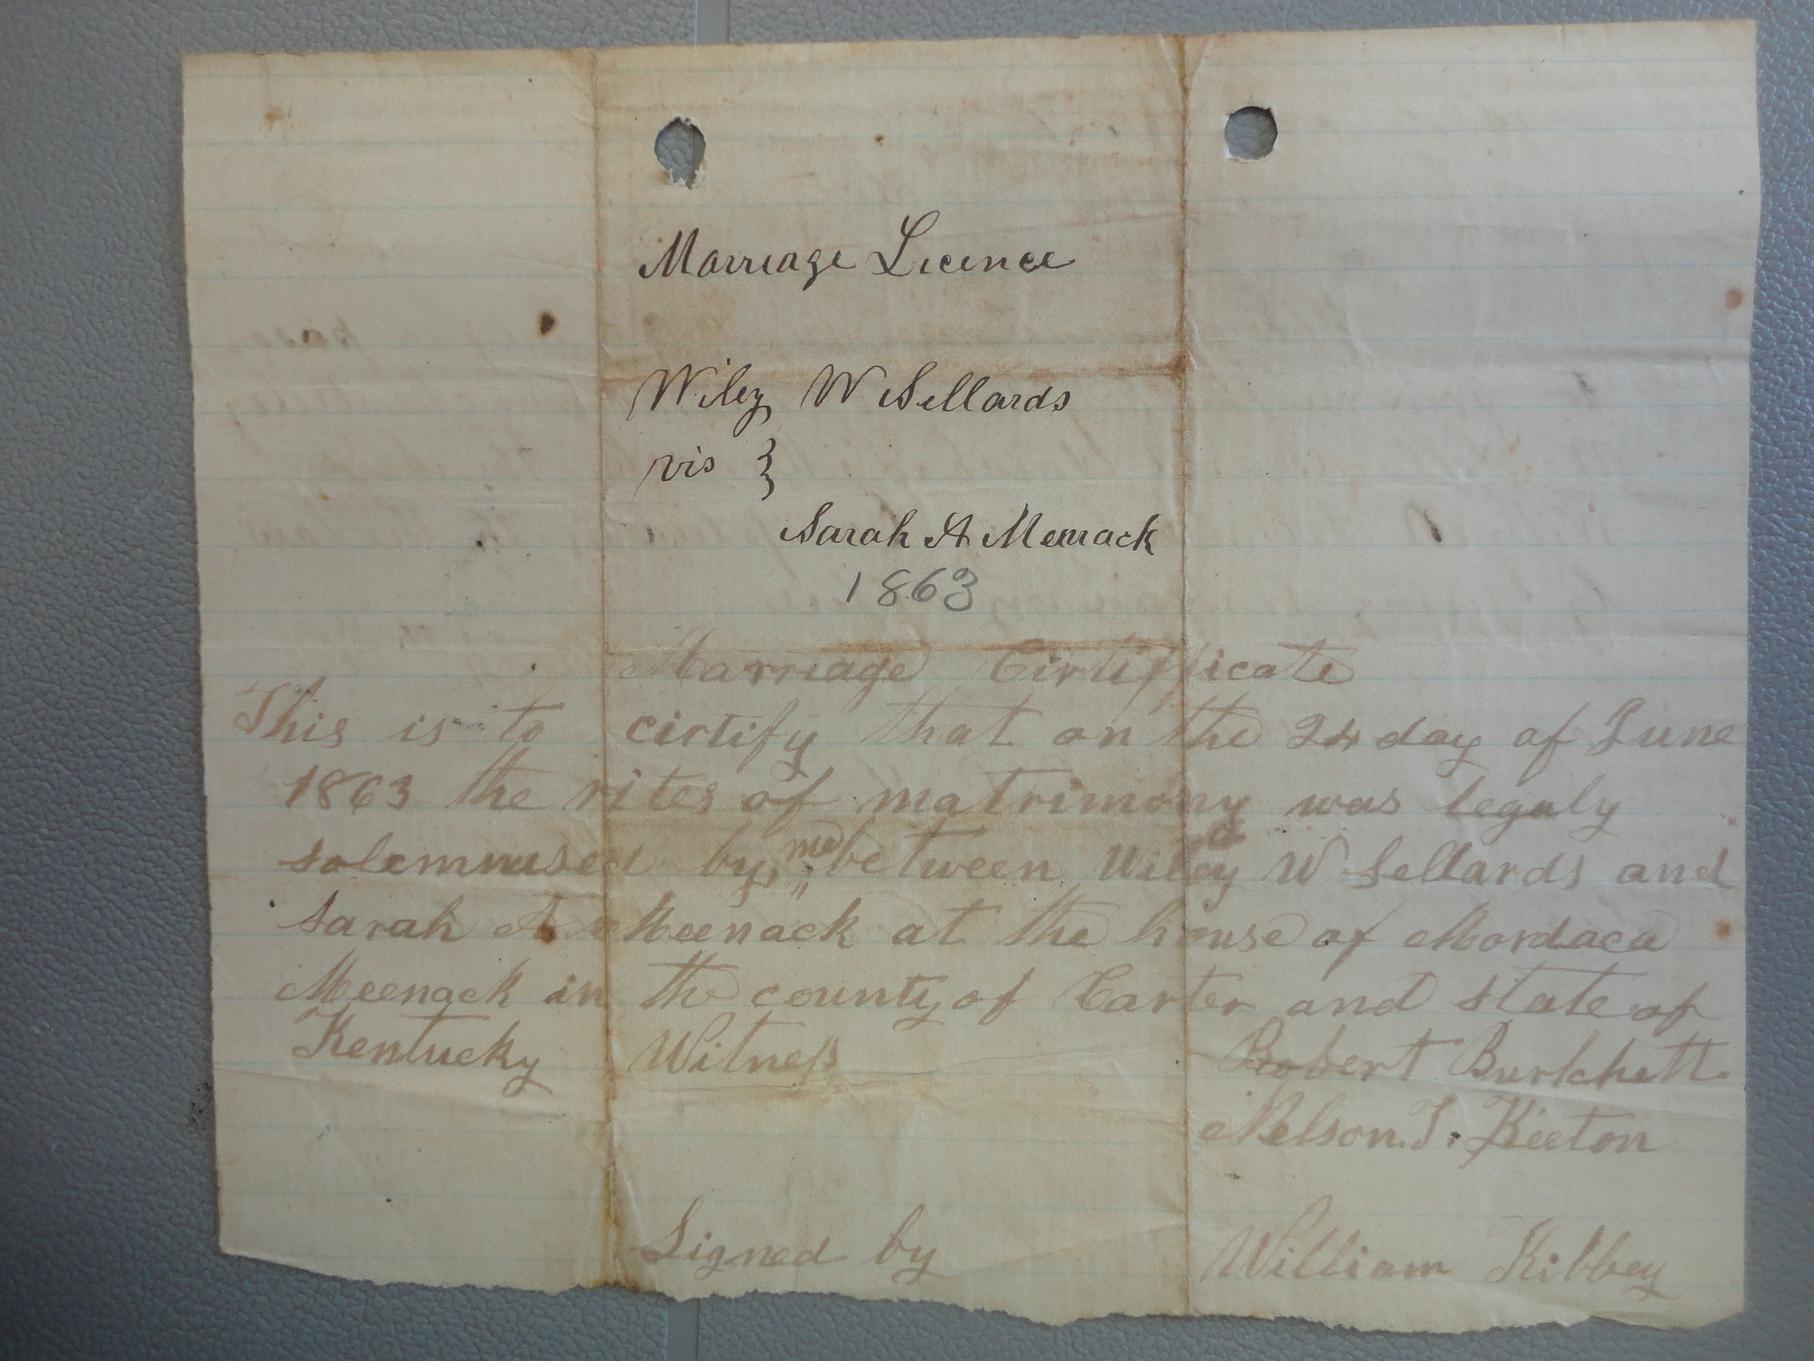 Marriage Licence
Wiley W Sellards
vis }
Sarah A Meenack
1863
Marriage Cirtifficate
This is to cirtify that on the 24 day of June
1863 the rites of matrimony was legaly
solemnised by, me between Wiley W Sellards and
Sarah A Meenack at the house of Mordaca
Meenack in the county of Carter and state of
Kentucky Witness Robert Burkhett.
Nelson. T. Keeton
Signed by William Kibbey